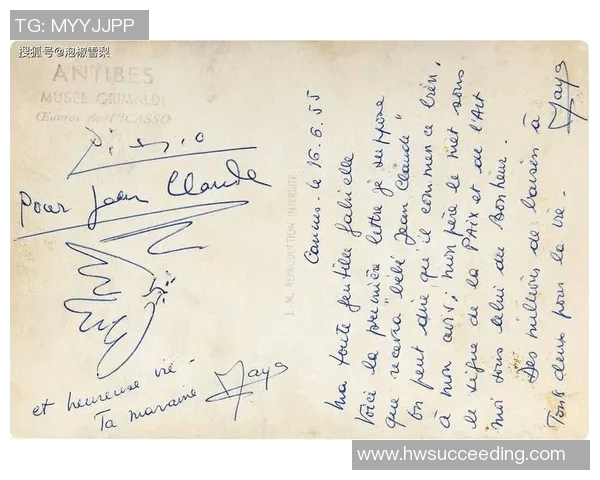 TG: MYYJJPP
搜狐号@泡椒雪梨
ANTIBES
MUSÉE GRIMALDI
Œuvres de PICASSO
Picasso
Pour Jean Claude
et heureuse vie.
Ta marraine Maya
J. M. REPRODUCTION INTERDITE
Cannes. le 16.6.55
Ma toute gentille Gabrielle
Voici la première lettre je suppose
que recevra "bébé Jean Claude"
On peut dire qu'il commence bien,
à mon avis; mon père le met sous
le signe de la PAix et de l'Art
moi sous celui du Bonheur.
Des millions de baisers à
Tous deux pour la vie.
Maya
www.hwsucceeding.com